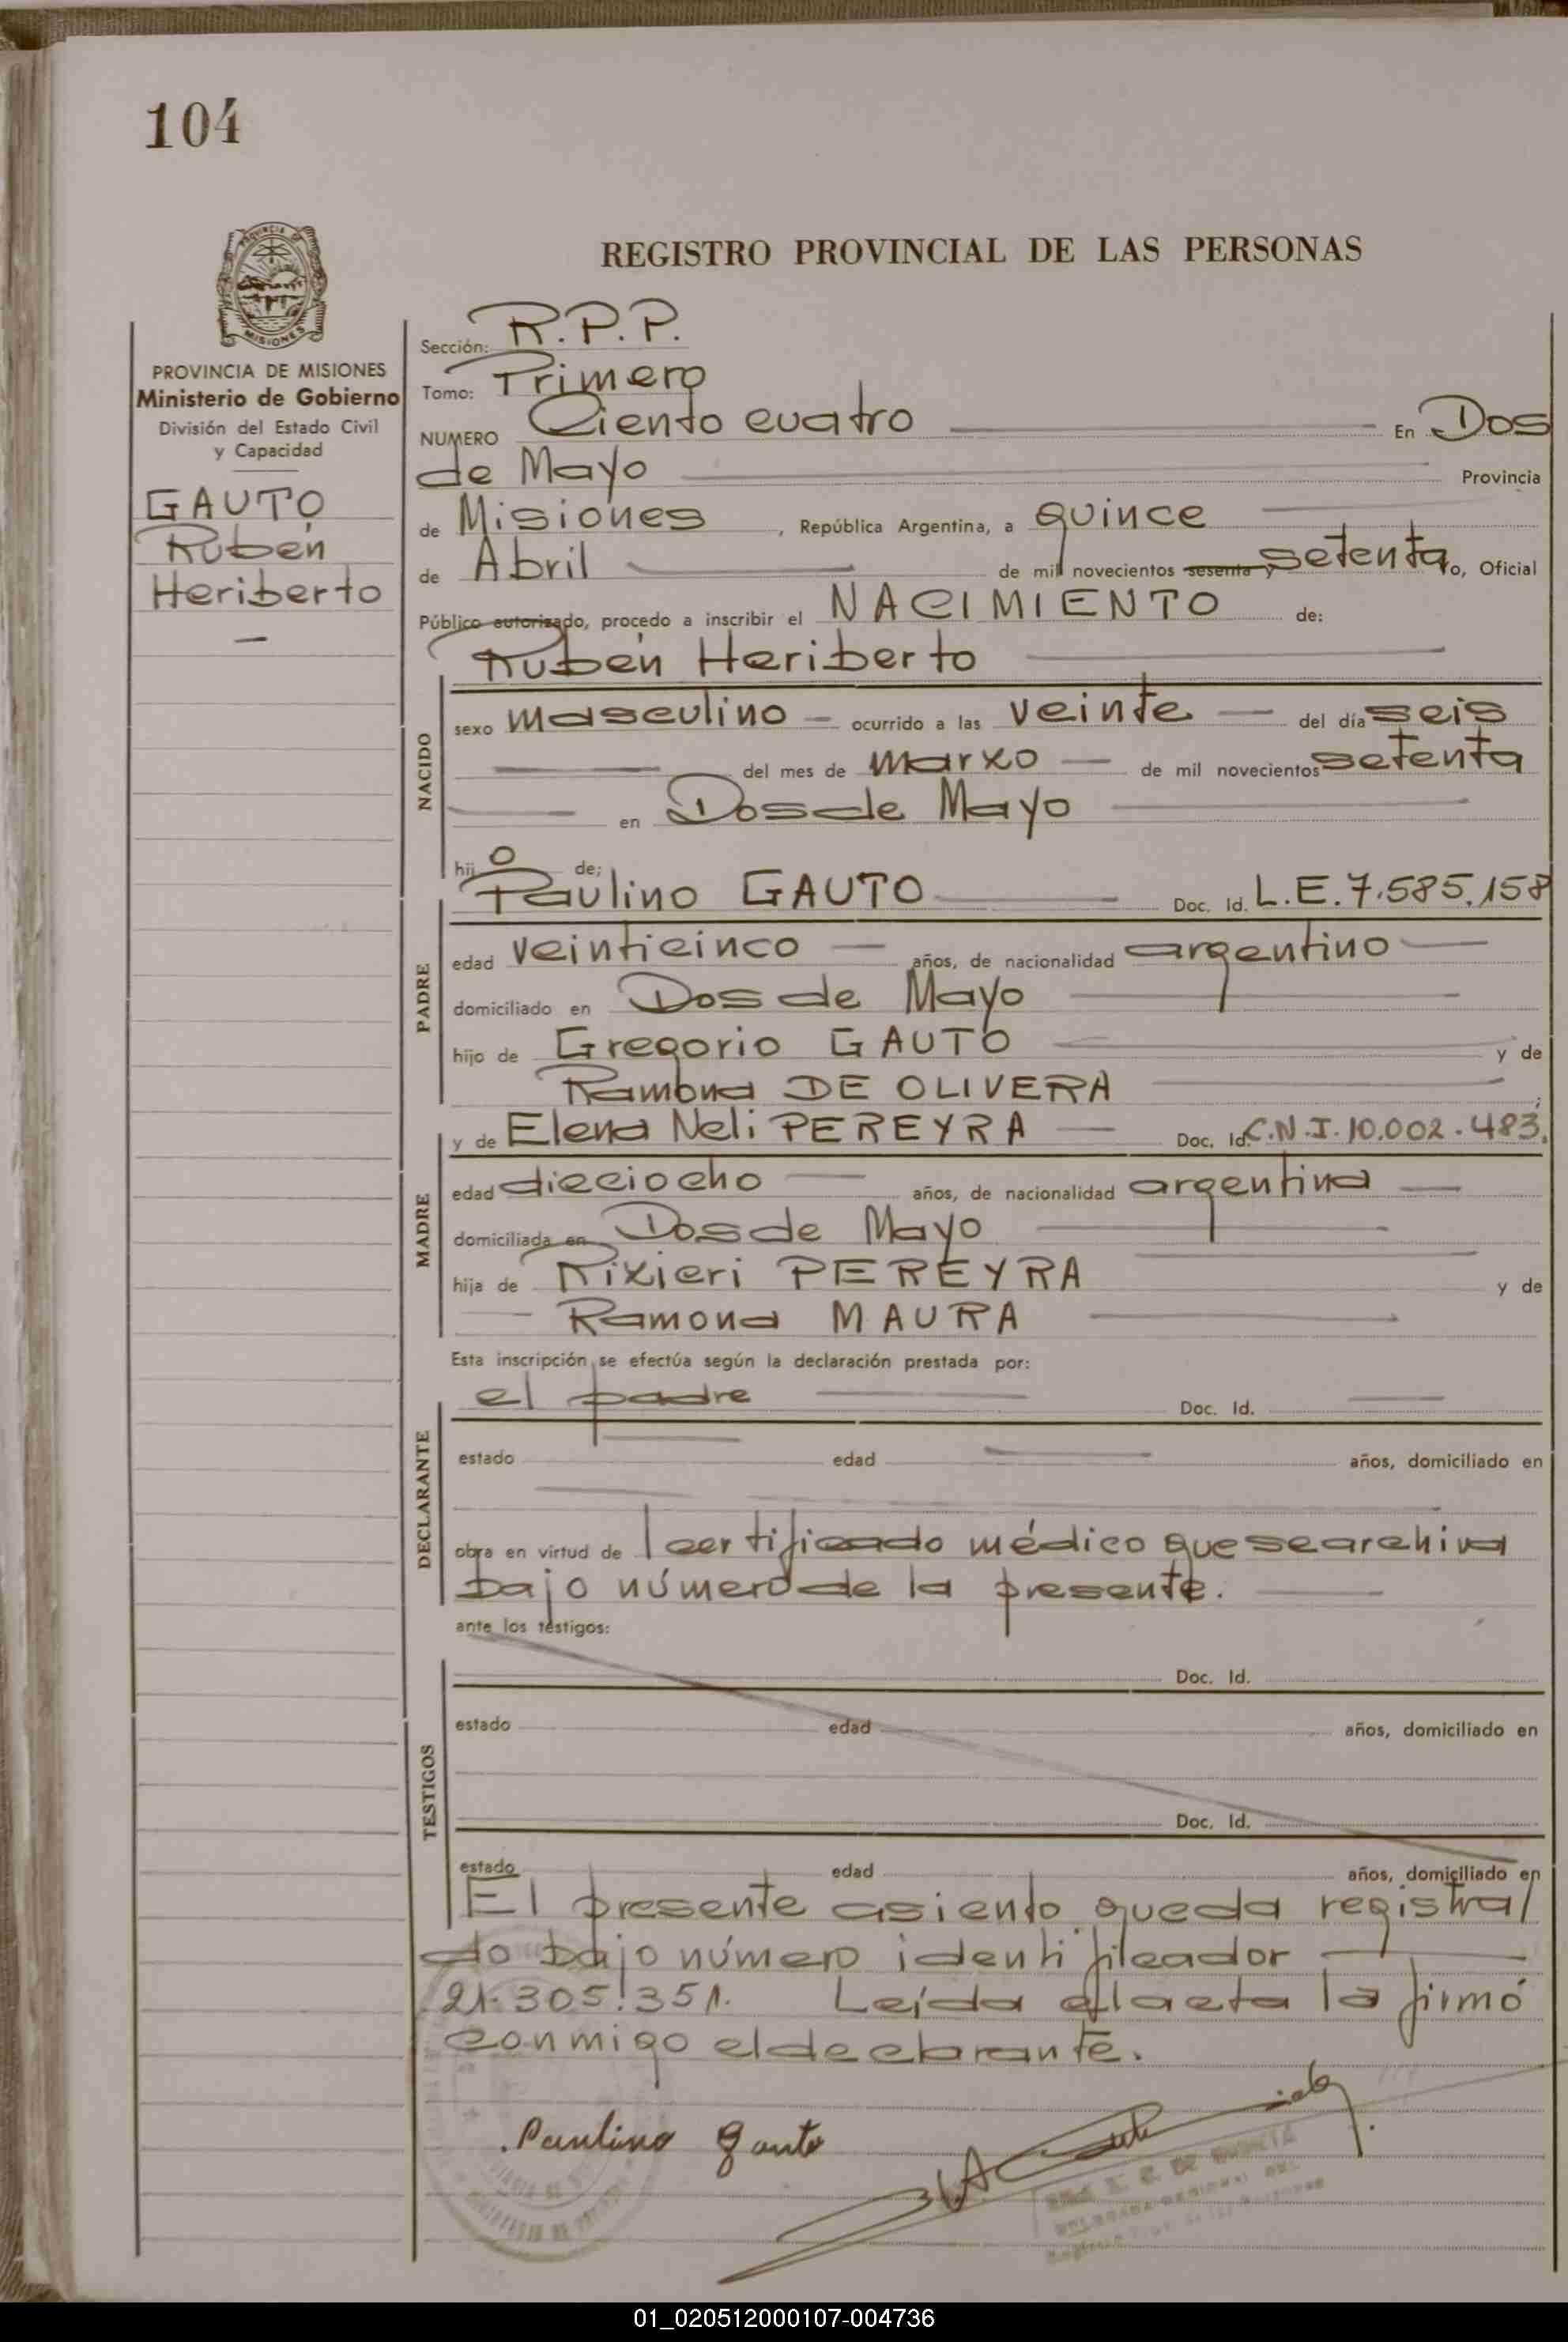 104
PROVINCIA DE
MISIONES
REGISTRO PROVINCIAL DE LAS PERSONAS
PROVINCIA DE MISIONES
Ministerio de Gobierno
División del Estado Civil
y Capacidad
GAUTO
Rubén
Heriberto
Sección: R.P.P.
Tomo: Primero
NUMERO Ciento cuatro En Dos
de Mayo Provincia
de Misiones, República Argentina, a quince
de Abril de mil novecientos sesenta y setenta o, Oficial
Público autorizado, procedo a inscribir el NACIMIENTO de:
Rubén Heriberto
NACIDO
sexo masculino ocurrido a las veinte del día seis
del mes de marxo de mil novecientos setenta
en Dos de Mayo
hij o de;
Paulino GAUTO Doc. Id. L.E. 7.585.158
PADRE
edad veinticinco años, de nacionalidad argentino
domiciliado en Dos de Mayo
hijo de Gregorio GAUTO y de
Ramona DE OLIVERA ;
y de Elena Neli PEREYRA Doc. Id. C.N.I. 10.002.483.
MADRE
edad dieciocho años, de nacionalidad argentina
domiciliada en Dos de Mayo
hija de Rixieri PEREYRA y de
Ramona MAURA
Esta inscripción se efectúa según la declaración prestada por:
el padre Doc. Id.
DECLARANTE
estado edad años, domiciliado en
obra en virtud de l certificado médico que se archiva
bajo número de la presente.
ante los testigos:
Doc. Id.
TESTIGOS
estado edad años, domiciliado en
Doc. Id.
estado edad años, domiciliado en
El presente asiento queda registra/
do bajo número identificador
21.305.351. Leída el acta la firmó
conmigo el declarante.
Paulino Gauto
01_020512000107-004736